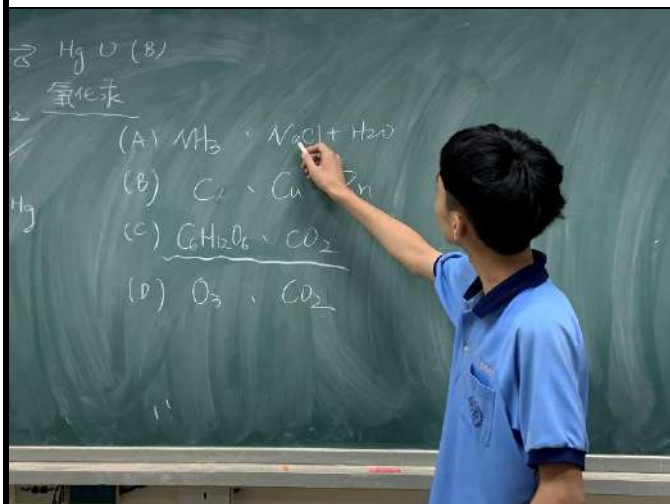 Hg O (B)
氧化汞
2
(A) NH3 、 NaCl + H2O
(B) C 、 Cu Zn
Hg
(C) C6H12O6 、 CO2
(D) O3 、 CO2